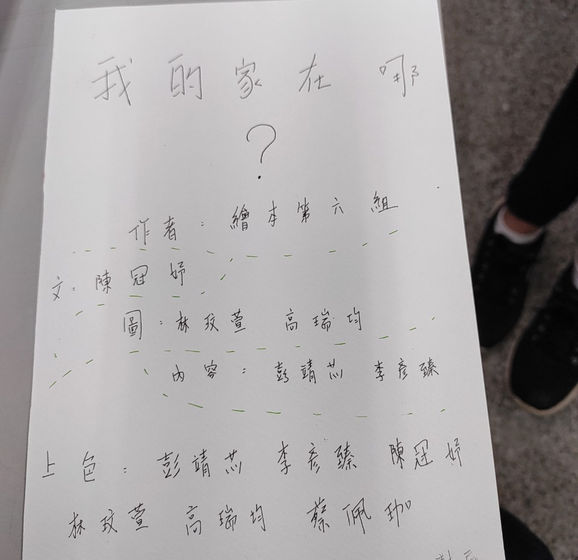 我的家在哪
?
作者：繪本第六組
文：陳冠妤
圖：林玟萱 高瑞均
內容：彭靖芯 李彥臻
上色：彭靖芯 李彥臻 陳冠妤
林玟萱 高瑞均 蔡佩珈